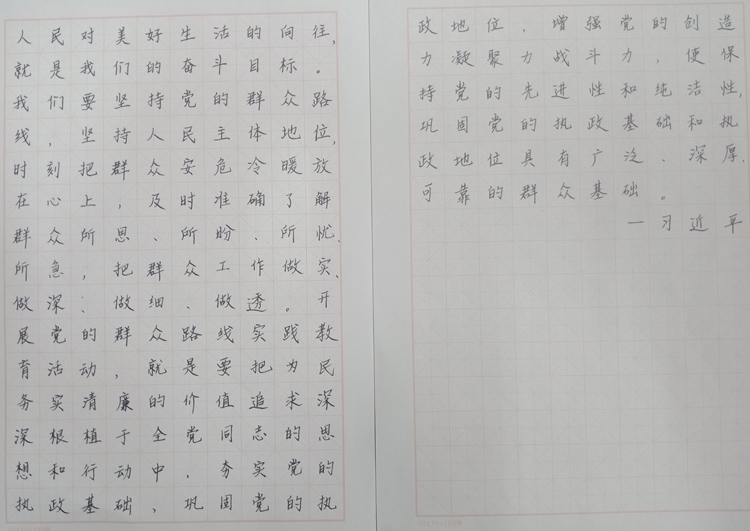 人民对美好生活的向往,
就是我们的奋斗目标。
我们要坚持党的群众路
线,坚持人民主体地位,
时刻把群众安危冷暖放
在心上,及时准确了解
群众所思、所盼、所忧、
所急,把群众工作做实、
做深、做细、做透。开
展党的群众路线实践教
育活动,就是要把为民
务实清廉的价值追求深
深根植于全党同志的思
想和行动中,夯实党的
执政基础,巩固党的执
政地位,增强党的创造
力凝聚力战斗力,使保
持党的先进性和纯洁性,
巩固党的执政基础和执
政地位具有广泛、深厚、
可靠的群众基础。
一习近平